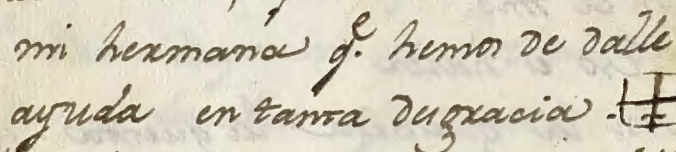 mi hermana q.e hemos de dalle
ayuda en tanta desgracia.